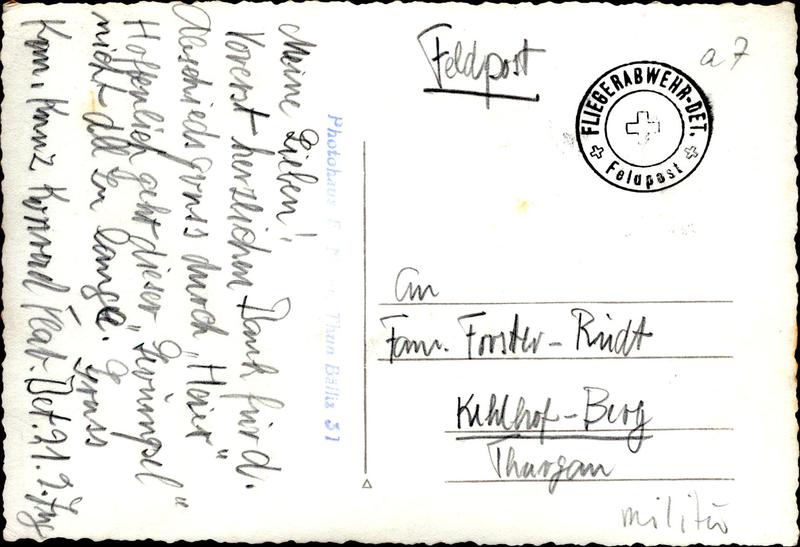 Meine Lieben!
Vorerst herzlichen Dank für d.
Abschiedsgruss durch „Heier"
Hoffentlich geht dieser „Grümpel"
nicht all zu lange. Gruss
Kan. Kunz Konrad Flab. Det. 21. 2. Zug
Photohaus Thun Bälliz 31
Feldpost
a 7
FLIEGERABWEHR-DET.
Feldpost
An
Fam. Forster-Rüdt
Kehlhof-Berg
Thurgau
militär